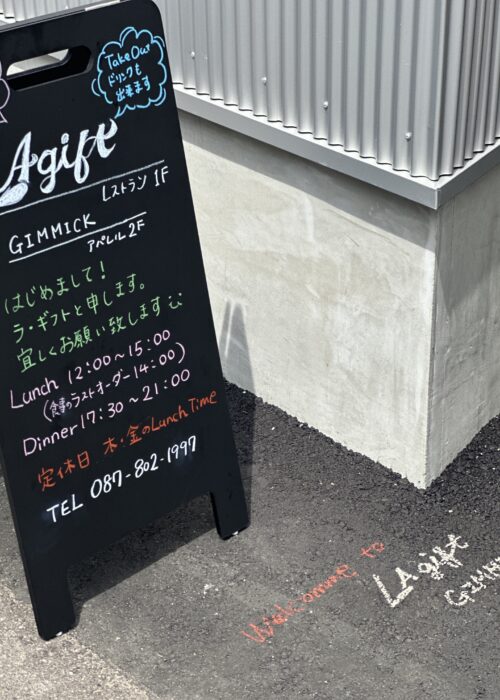 Take Out
ドリンクも
出来ます
Agift
レストラン 1F
GIMMICK
アパレル 2F
はじめまして！
ラ・ギフトと申します。
宜しくお願い致します
Lunch 12:00～15:00
(食事のラストオーダー 14:00)
Dinner 17:30～21:00
定休日 木・金のLunch Time
TEL 087-802-1997
Welcomme to
LAgift
GIMM